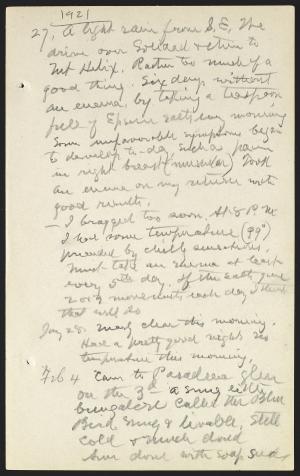 1921
27, A light rain from S.E. The
drive over Soledad & then to
Mt Helix. Rather too much of a
good thing. Six days without
an enema, by taking a teaspoon
full of Epsom salts every morning
Some unfavorable symptoms begin
to develop to-day such as pain
in right breast (muscular) Took
an enema on my return with
good results.
— I bragged too soon. At 8 P.M
I had some temperature (99°)
preceded by chilly sensations.
Must take an enema at least
every 5th day. If the salts give
2 or 3 movements each day I think
that will do
Jan 28. nearly clear this morning.
Had a pretty good night no
temperature this morning,
Feb 4 Came to Pasadena Glen
on the 3d a snug little
bungalow called the Blue
Bird, snug & livable, Still
cold & much cloud
down with soap suds